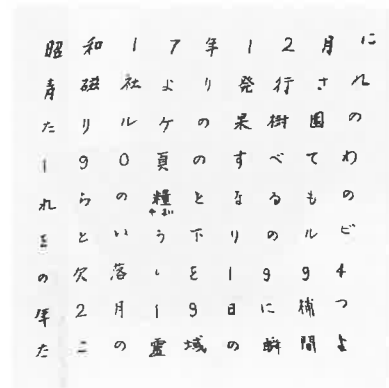 昭和17年12月に
青磁社より発行され
たリルケの果樹園の
190頁のすべてわ
れらの糧となるもの
という下りのルビ
の欠落いを1994
年2月19日に補つ
たこの霊域の瞬間よ